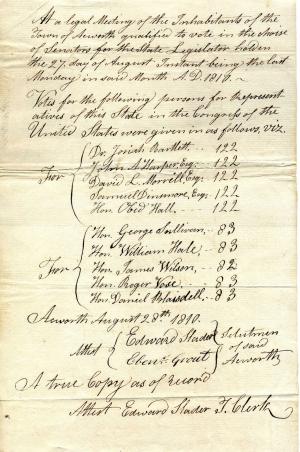 At a legal Meeting of the Inhabitants of the
Town of Acworth qualified to vote in the choise
of Senators for the State Legislator holden
the 27. day of August Instant being the last
Monday in said Month A.D. 1810.~
Votes for the following persons for Represent
atives of this State in the Congress of the
United States were given in as follows, viz.
For
Dr. Josiah Bartlett -- 122
John A Harper, Esq. - 122
David L. Morrill, Esq - 122
Samuel Dinsmore, Esq. 122
Hon. Obed Hall. -- 122
For
Hon. George Sullivan, - 83
Hon. William Hale, - 83
Hon. James Wilson, - 82
Hon. Roger Vose, -- 83
Hon. Daniel Blaisdell, - 83
Acworth August 28th, 1810.
Attest
Edward Slader
Ebenr. Grout
Selectmen
of said
Acworth
A true Copy as of record
Attest Edward Slader T. Clerk